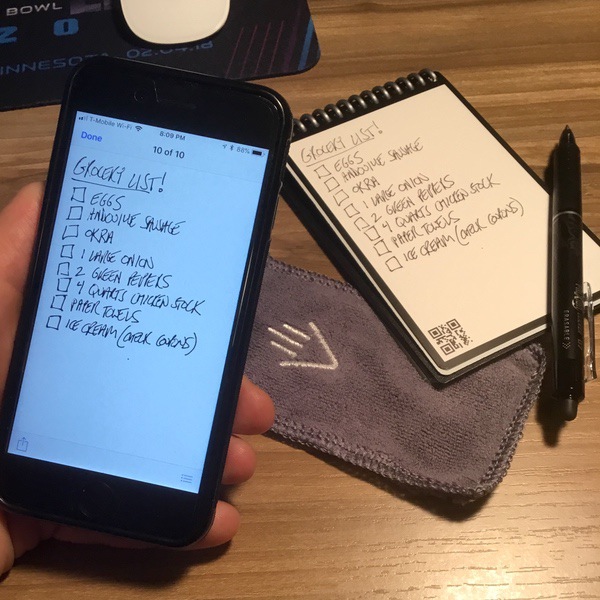 BOWL
MINNESOTA 02.04.18
T-Mobile Wi-Fi 8:09 PM 68%
Done
10 of 10
GROCERY LIST!
EGGS
ANDOUILLE SAUSAGE
OKRA
1 LARGE ONION
2 GREEN PEPPERS
4 QUARTS CHICKEN STOCK
PAPER TOWELS
ICE CREAM (CHECK COUPONS)
GROCERY LIST!
EGGS
ANDOUILLE SAUSAGE
OKRA
1 LARGE ONION
2 GREEN PEPPERS
4 QUARTS CHICKEN STOCK
PAPER TOWELS
ICE CREAM (CHECK COUPONS)
ERASABLE